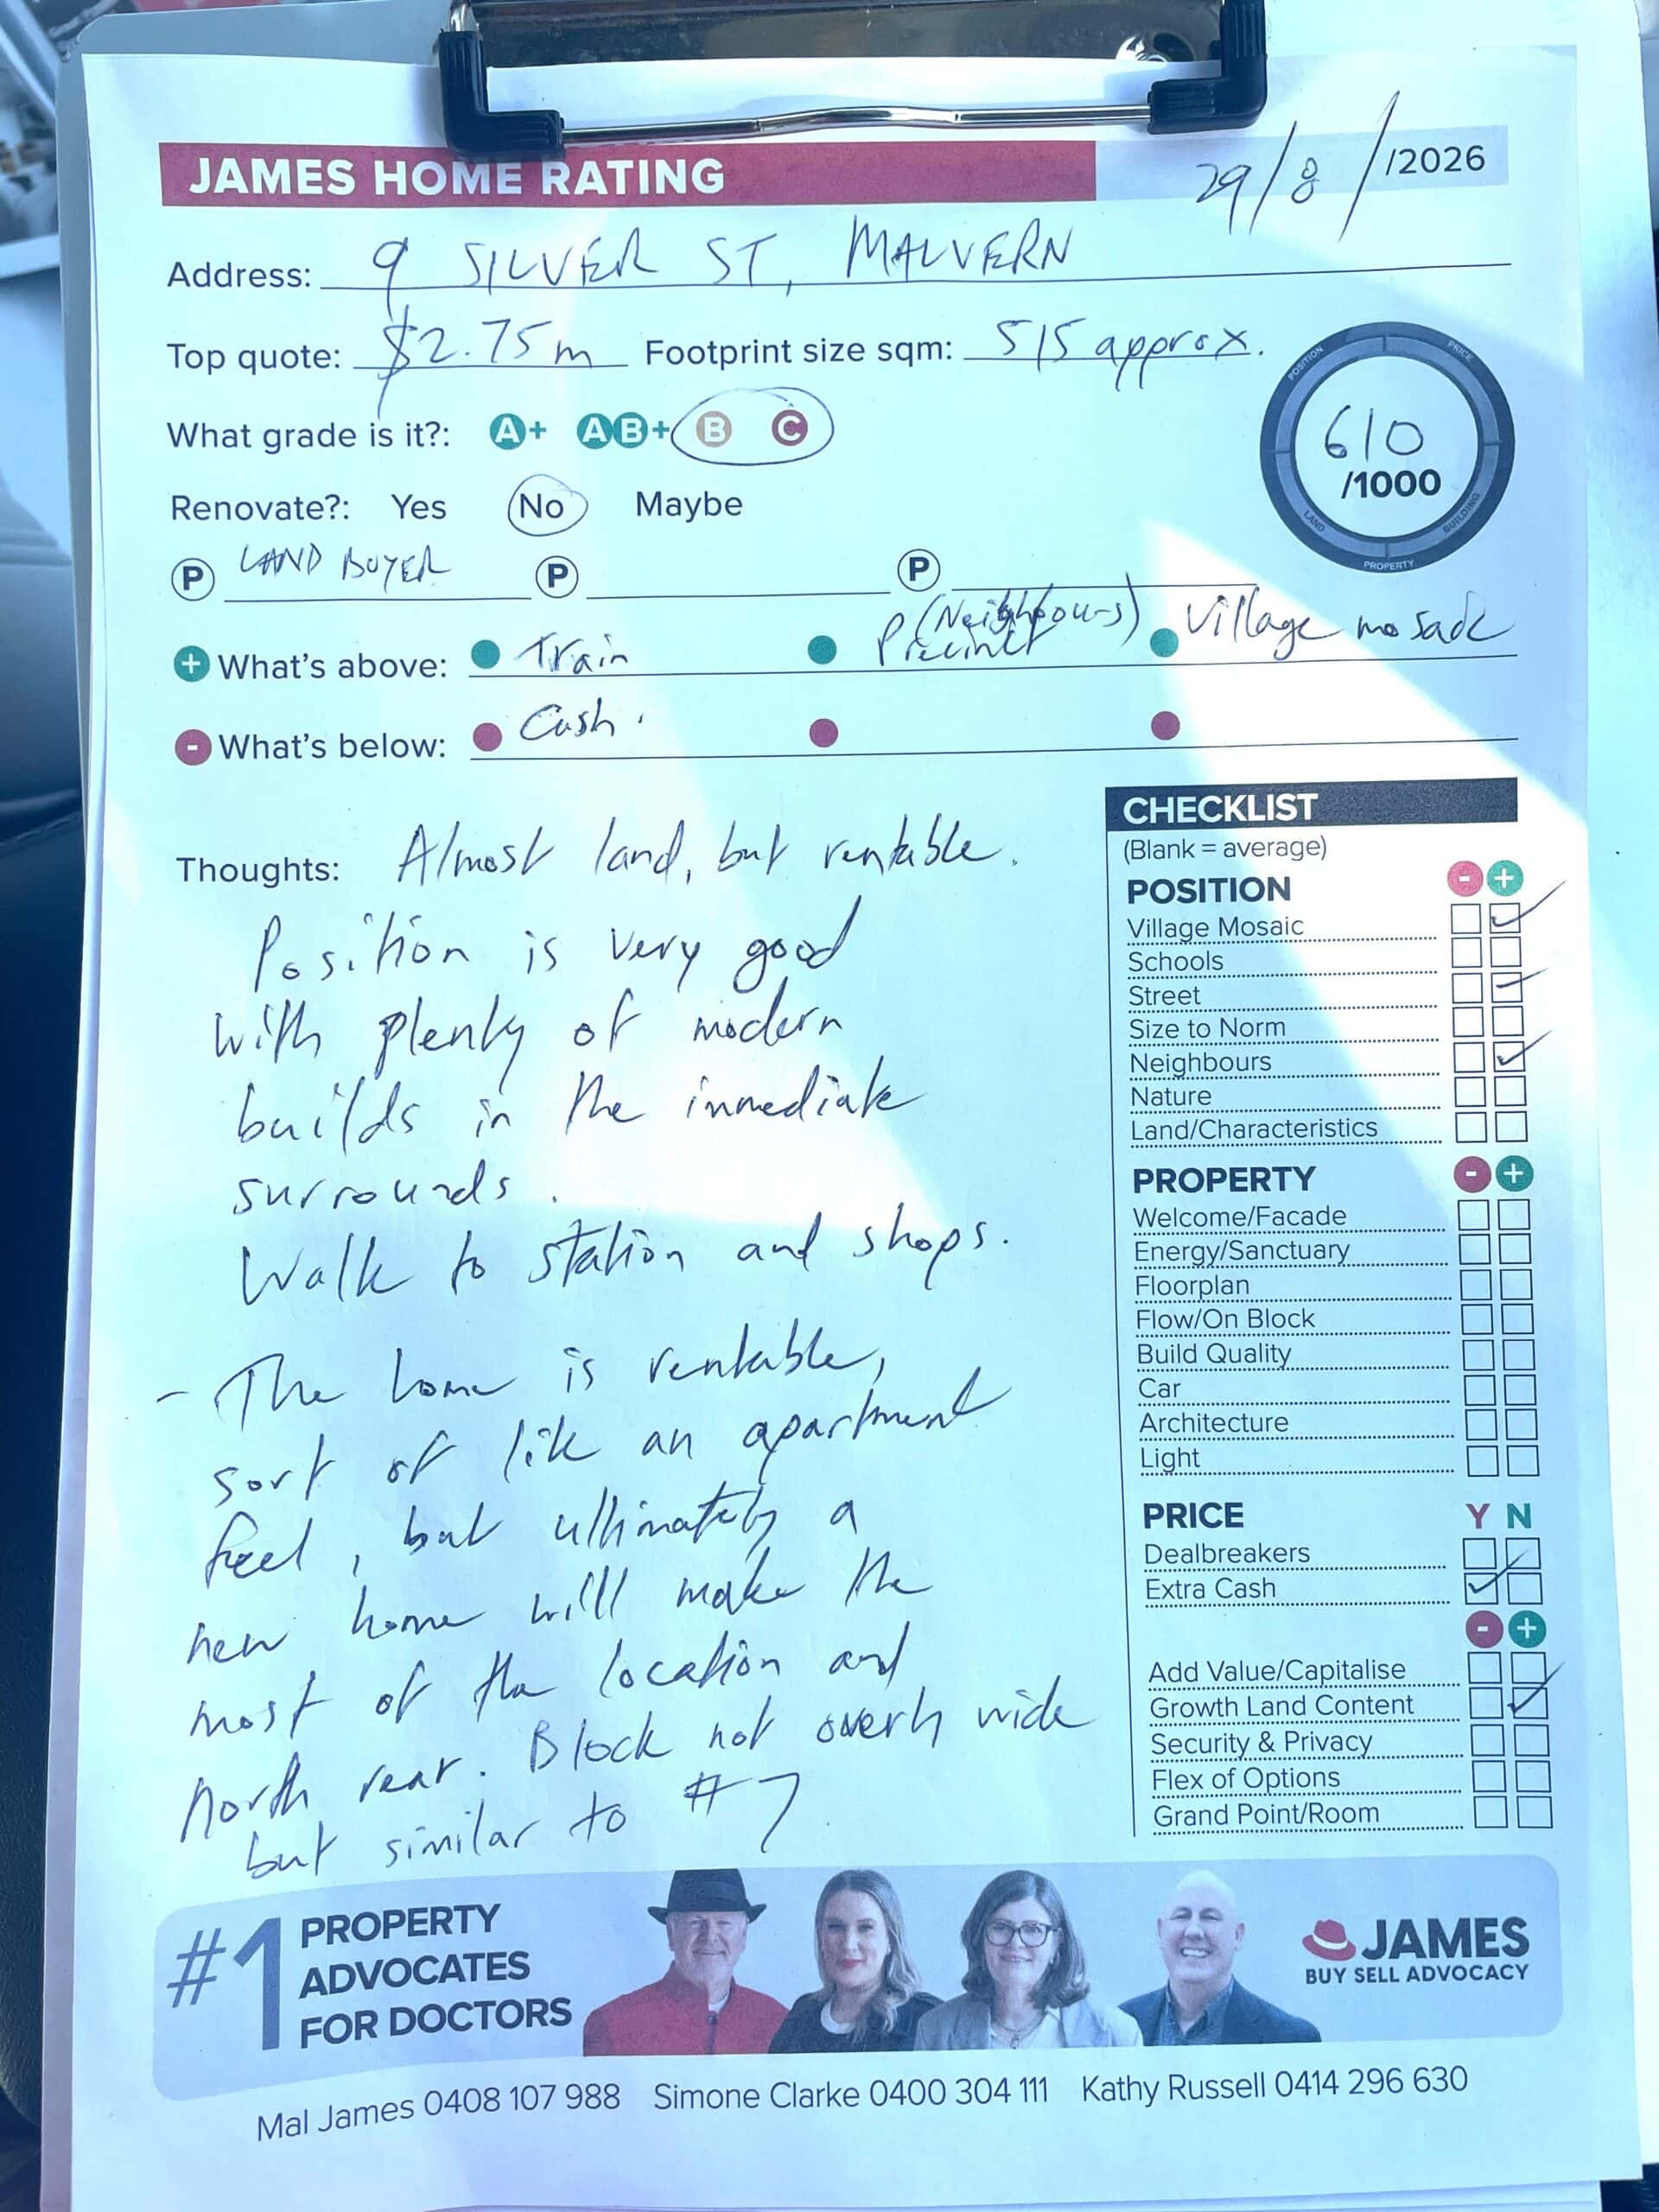 JAMES HOME RATING
29/8/ /2026
Address: 9 SILVER ST, MALVERN
Top quote: $2.75m Footprint size sqm: 515 approx.
What grade is it?: A+ AB+ B C
610
/1000
POSITION PRICE BUILDING PROPERTY LAND
Renovate?: Yes No Maybe
P LAND BUYER P P
+ What's above: Train Precinct (Neighbours) Village mosaic
- What's below: Cash.
Thoughts: Almost land, but rentable.
Position is very good
with plenty of modern
builds in the immediate
surrounds.
Walk to station and shops.
- The home is rentable,
sort of like an apartment
feel, but ultimately a
new home will make the
most of the location and
north rear. Block not overly wide
but similar to #7
CHECKLIST
(Blank = average)
POSITION - +
Village Mosaic
Schools
Street
Size to Norm
Neighbours
Nature
Land/Characteristics
PROPERTY - +
Welcome/Facade
Energy/Sanctuary
Floorplan
Flow/On Block
Build Quality
Car
Architecture
Light
PRICE Y N
Dealbreakers
Extra Cash
- +
Add Value/Capitalise
Growth Land Content
Security & Privacy
Flex of Options
Grand Point/Room
#1 PROPERTY
ADVOCATES
FOR DOCTORS
JAMES
BUY SELL ADVOCACY
Mal James 0408 107 988 Simone Clarke 0400 304 111 Kathy Russell 0414 296 630